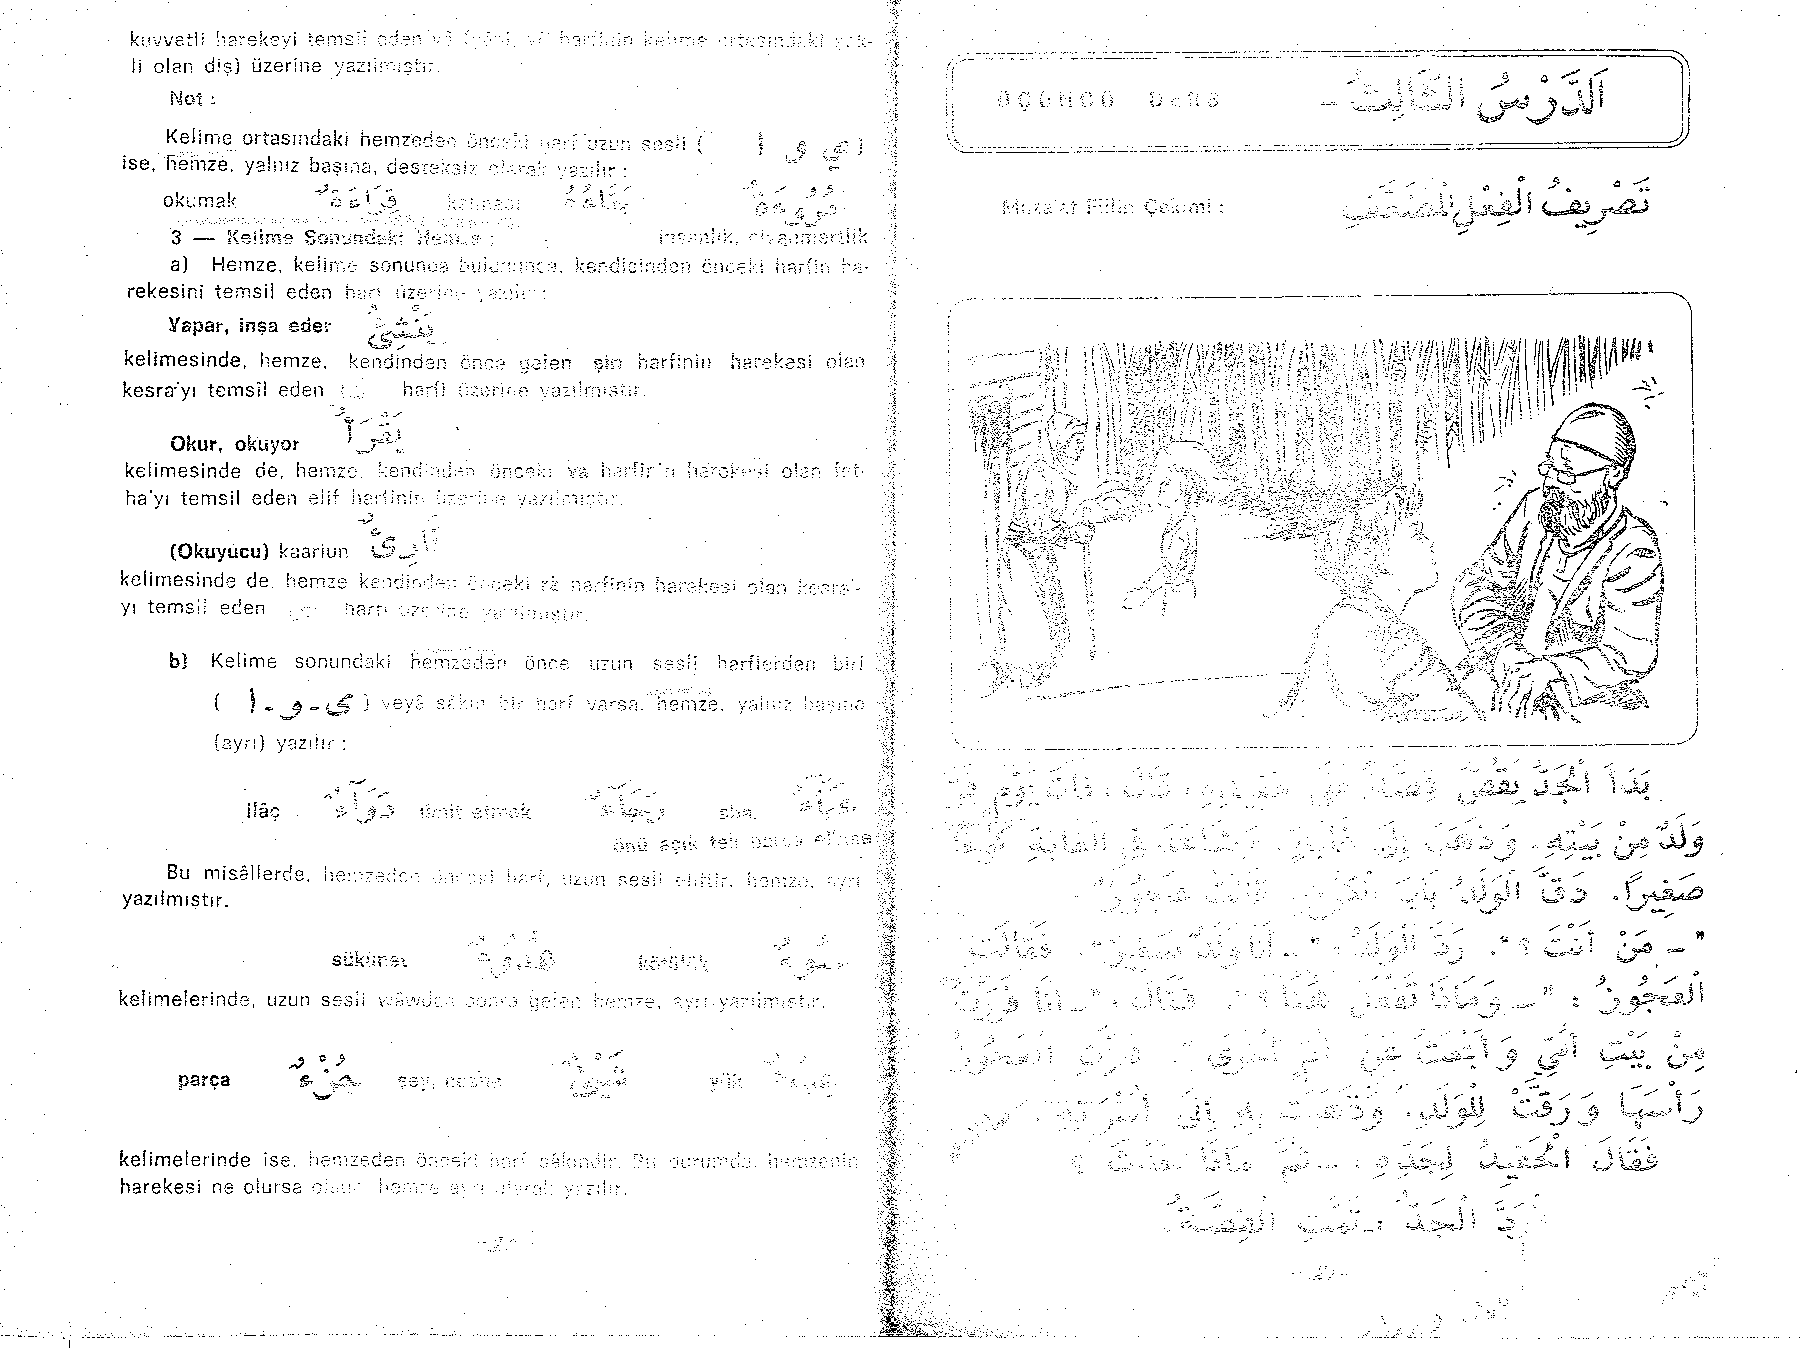 kuvvetli harekeyi temsil eden yâ (yâni, yâ harfinin kelime ortasındaki şek-
li olan diş) üzerine yazılmıştır.
Not :
Kelime ortasındaki hemzeden önceki harf uzun sesli ( ا و ي )
ise, hemze, yalnız başına, desteksiz olarak yazılır :
okumak قِرَاءَةٌ
3 — Kelime Sonundaki Hemze : insanlık, civanmertlik
a) Hemze, kelime sonunda bulununca, kendisinden önceki harfin ha-
rekesini temsil eden harf üzerine yazılır :
Yapar, inşa eder يُنْشِئُ
kelimesinde, hemze, kendinden önce gelen şin harfinin harekesi olan
kesra'yı temsil eden harfi üzerine yazılmıştır.
Okur, okuyor يَقْرَأُ
kelimesinde de, hemze, kendinden önceki harfinin harekesi olan fet-
ha'yı temsil eden elif harfinin üzerine yazılmıştır.
(Okuyucu) kaariun قَارِئٌ
kelimesinde de, hemze kendinden önceki râ harfinin harekesi olan kesra'-
yı temsil eden harfi üzerine yazılmıştır.
b) Kelime sonundaki hemzeden önce uzun sesli harflerden biri
( ا - و - ى ) veyâ sâkin bir harf varsa, hemze, yalnız başına
(ayrı) yazılır :
ilâç دَوَاءٌ ümit etmek رَجَاءٌ aba, عَبَاءٌ
önü açık tek parça elbise
Bu misâllerde, hemzeden önceki harf, uzun sesli eliftir, hemze, ayrı
yazılmıştır.
sükûnet هُدُوءٌ kötülük سُوءٌ
kelimelerinde, uzun sesli wâwdan sonra gelen hemze, ayrı yazılmıştır.
parça جُزْءٌ şey, nesne شَيْءٌ yük عِبْءٌ
kelimelerinde ise, hemzeden önceki harf sâkindir. Bu durumda, hemzenin
harekesi ne olursa olsun hemze ayrı olarak yazılır.
ÜÇÜNCÜ DERS اَلدَّرْسُ الثَّالِثُ -
Muzaaf Fiilin Çekimi : تَصْرِيفُ الْفِعْلِ الْمُضَعَّفِ
بَدَأَ الْجَدُّ يَقُصُّ قِصَّةً عَلَى حَفِيدِهِ، قَالَ : ذَاتَ يَوْمٍ فَرَّ
وَلَدٌ مِنْ بَيْتِهِ. وَذَهَبَ إِلَى غَابَةٍ. وَشَاهَدَ فِي الْغَابَةِ كُوخًا
صَغِيرًا. دَقَّ الْوَلَدُ بَابَ الْكُوخِ. كَانَتْ عَجُوزٌ
"- مَنْ أَنْتَ ؟". رَدَّ الْوَلَدُ : "- أَنَا وَلَدٌ صَغِيرٌ". فَقَالَتِ
الْعَجُوزُ : "- وَمَاذَا تَفْعَلُ هُنَا ؟". فَقَالَ : "- أَنَا فَرَرْتُ
مِنْ بَيْتِ أُمِّي وَ أَبْحَثُ عَنْ أُمٍّ أُخْرَى". هَزَّتِ الْعَجُوزُ
رَأْسَهَا وَ رَقَّتْ لِلْوَلَدِ. وَذَهَبَتْ بِهِ إِلَى أُسْرَتِهِ.
فَقَالَ الْحَفِيدُ لِجَدِّهِ : - ثُمَّ مَاذَا حَدَثَ ؟
رَدَّ الْجَدُّ : تَمَّتِ الْقِصَّةُ.